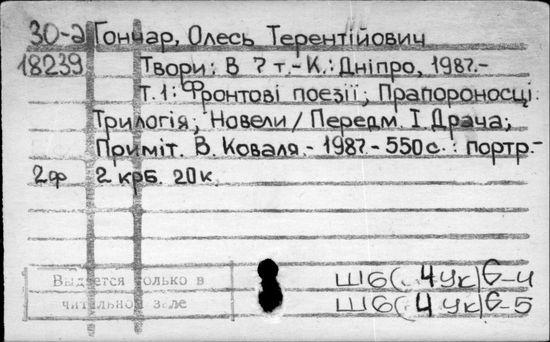 30-2 Гончар, Олесь Терентійович
18239 Твори: В 7 т.- К.: Дніпро, 1987.-
Т.1: Фронтові поезії; Прапороносці:
Трилогія; Новели / Передм. І. Драча;
Приміт. В. Коваля.- 1987.- 550 с.: портр.-
2ф 2 крб. 20 к.
Выдается только в
читальном зале
Ш6(4Ук)6-4
Ш6(4Ук)6-5